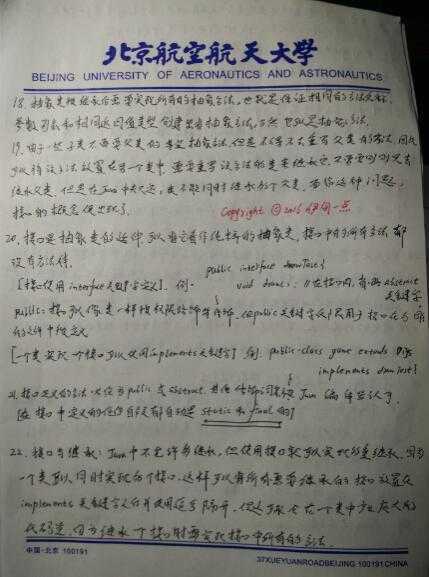 北京航空航天大学
BEIJING UNIVERSITY OF AERONAUTICS AND ASTRONAUTICS
18. 抽象类被继承后需要实现所有的抽象方法，也就是保证相同的方法名称、
参数列表和相同返回值类型创建出非抽象方法，当然也就是抽象方法。
19. 由于一些子类不需要父类的某些抽象方法，但是不得不去重写父类的方法，因此
可以将该方法放置在另一个类中，需要重写该方法的类来继承它，不需要则别去
继承父类，但是在Java中规定，类不能同时继承多个父类，面临这种问题，
接口的概念便出现了。
Copyright © 2016 伊网一点
20. 接口是抽象类的延伸，可以看作纯粹的抽象类，接口中的所有方法都
没有方法体。
[接口使用 interface 关键字定义]. 例: public interface drawTest{
void draw(); //在接口内，省略abstract关键字
}
public: 接口可以像类一样被权限修饰符修饰，但public关键字仅限用于接口在与同
名的文件中被定义
[一个类实现一个接口可以使用implements关键字] 例: public class game extends
implements drawTest{
}
21. 接口定义的方法必须为public或abstract, 其他修饰符 Java 编译器认可。
在接口中定义的任何自段都自动是 static 和 final 的]
22. 接口与继承: Java中不允许多继承，但使用接口就可以实现多重继承，因为
一个类可以同时实现多个接口，这样可以将所有需要继承的接口放置在
implements 关键字后并使用逗号隔开，但这可能会在一个类中产生庞大的
代码量，因为继承一个接口时需要实现接口中所有的方法。
中国·北京 100191
37XUEYUANROADBEIJING 100191CHINA